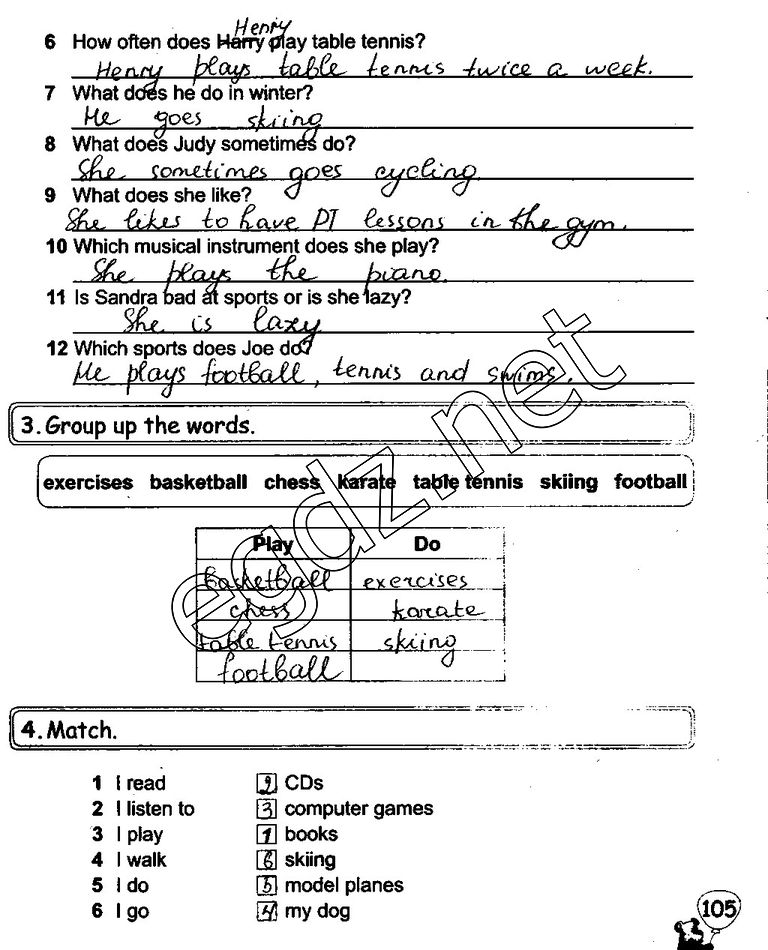 Henry
6 How often does Harry play table tennis?
Henry plays table tennis twice a week.
7 What does he do in winter?
He goes skiing
8 What does Judy sometimes do?
She sometimes goes cycling.
9 What does she like?
She likes to have PT lessons in the gym.
10 Which musical instrument does she play?
She plays the piano.
11 Is Sandra bad at sports or is she lazy?
She is lazy
12 Which sports does Joe do?
He plays football, tennis and swims.
3. Group up the words.
exercises basketball chess karate table tennis skiing football
Play Do
basketball exercises
chess karate
table tennis skiing
football
egdz.net
4. Match.
1 I read 2 CDs
2 I listen to 3 computer games
3 I play 1 books
4 I walk 6 skiing
5 I do 5 model planes
6 I go 4 my dog
105